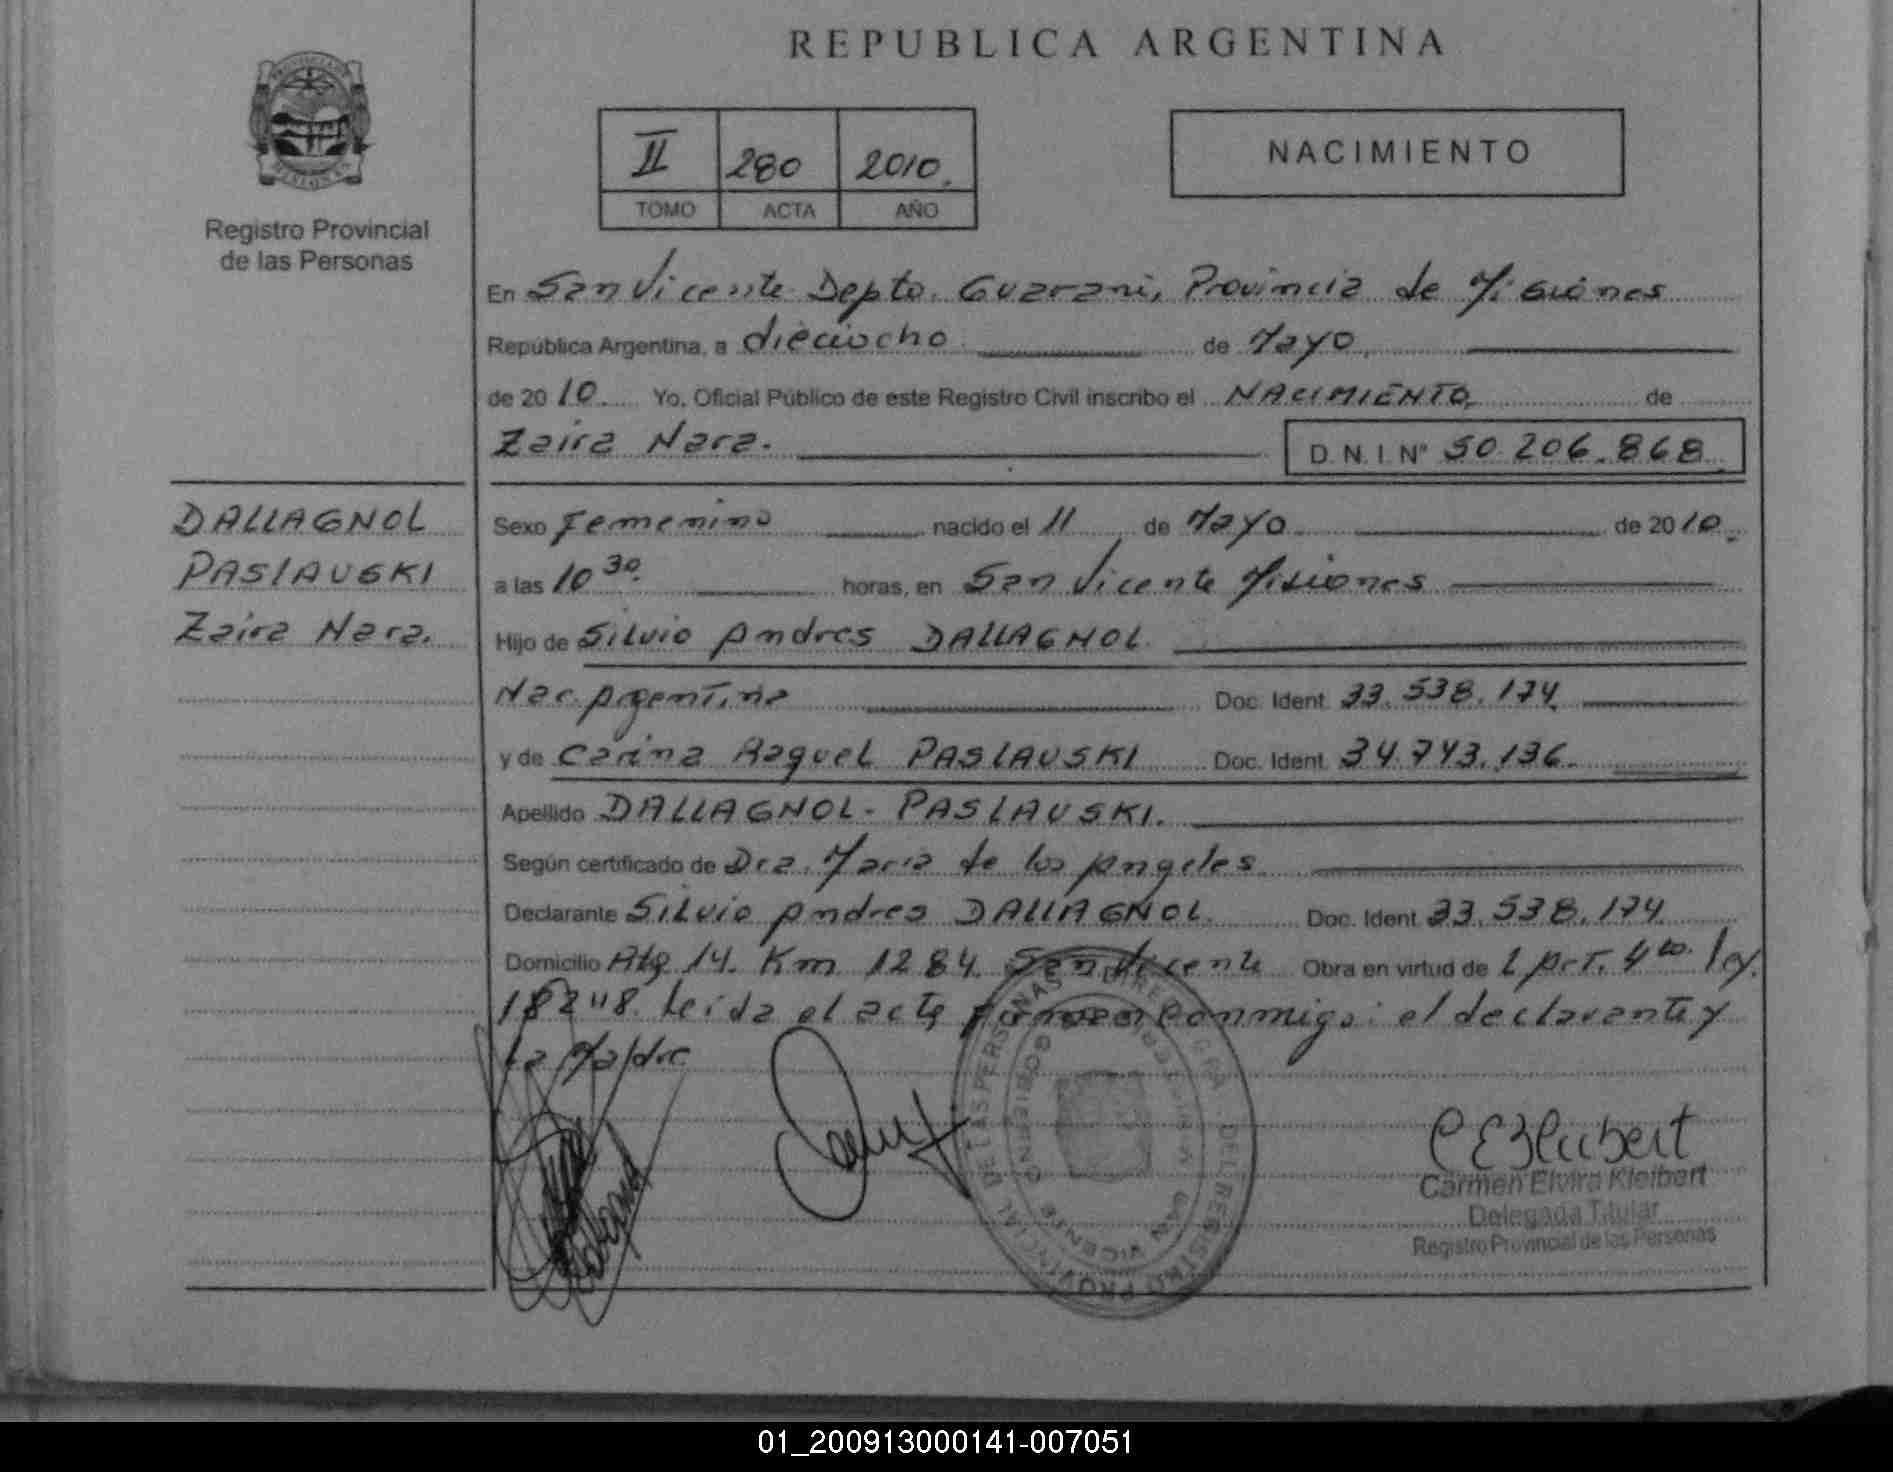 REPUBLICA ARGENTINA
Registro Provincial
de las Personas
II 280 2010.
TOMO ACTA AÑO
NACIMIENTO
En San Vicente Depto. Guarani, Provincia de Misiones
República Argentina, a dieciocho de Mayo
de 2010. Yo, Oficial Público de este Registro Civil inscribo el NACIMIENTO de
Zaira Nara. D.N.I. Nº 50.206.868
DALLAGNOL
PASLAUSKI
Zaira Nara.
Sexo Femenino nacido el 11 de Mayo de 2010.
a las 10 30 horas, en San Vicente Misiones
Hijo de Silvio Andres DALLAGNOL
Nac. Argentina Doc. Ident. 33.538.174
y de Carina Raquel PASLAUSKI Doc. Ident. 34.743.136.
Apellido DALLAGNOL - PASLAUSKI.
Según certificado de Dra. Maria de los Angeles
Declarante Silvio Andres DALLAGNOL Doc. Ident. 33.538.174
Domicilio Ruta 14. Km 1284. San Vicente Obra en virtud de L Art. 4to. ley.
18248. leida el acta firman conmigo: el declarante y
la Madre
DIREC. GRAL. DEL REGISTRO PROVINCIAL DE LAS PERSONAS
SAN VICENTE
Carmen Elvira Kleibert
Delegada Titular
Registro Provincial de las Personas
01_200913000141-007051